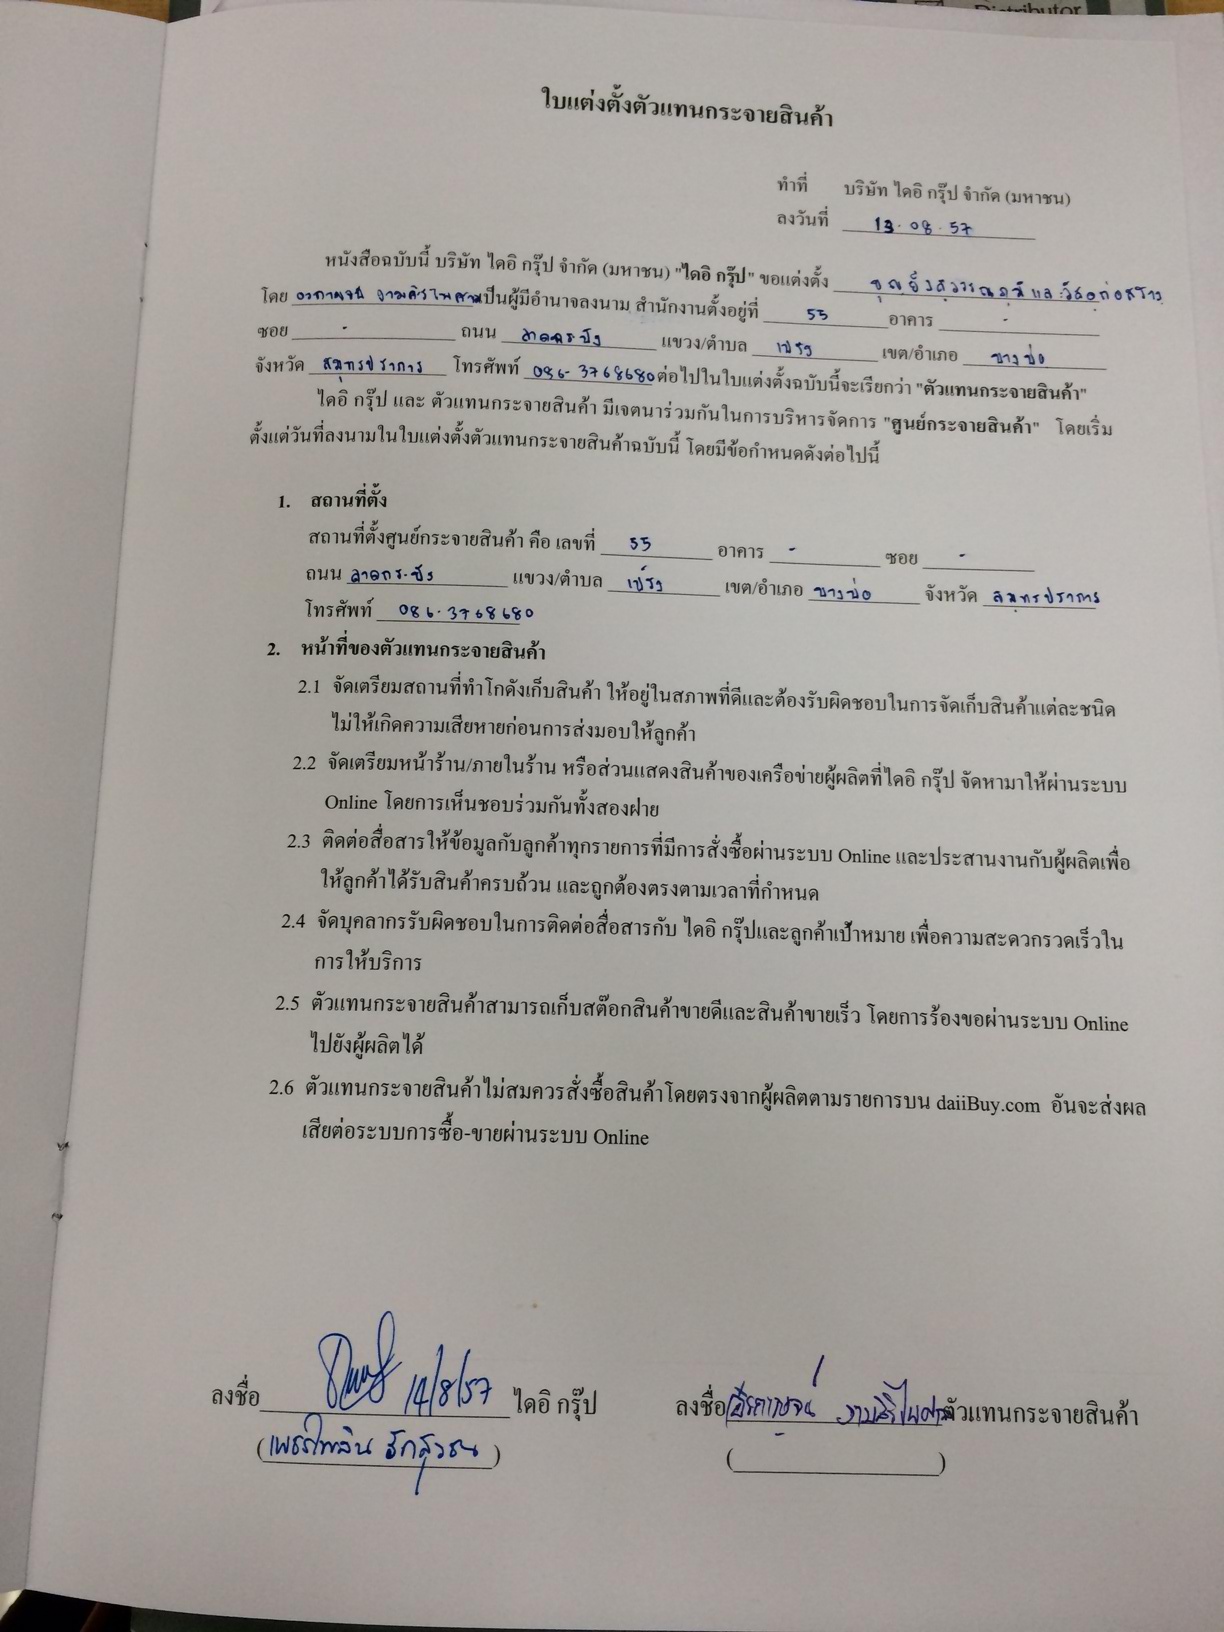 Distributor
ใบแต่งตั้งตัวแทนกระจายสินค้า
ทำที่ บริษัท ไดอิ กรุ๊ป จำกัด (มหาชน)
ลงวันที่ 13.08.57
หนังสือฉบับนี้ บริษัท ไดอิ กรุ๊ป จำกัด (มหาชน) "ไดอิ กรุ๊ป" ขอแต่งตั้ง
โดย เป็นผู้มีอำนาจลงนาม สำนักงานตั้งอยู่ที่ 55 อาคาร -
ซอย - ถนน ลาดกระบัง แขวง/ตำบล เปร็ง เขต/อำเภอ บางบ่อ
จังหวัด สมุทรปราการ โทรศัพท์ 086-3768680 ต่อไปในใบแต่งตั้งฉบับนี้จะเรียกว่า "ตัวแทนกระจายสินค้า"
ไดอิ กรุ๊ป และ ตัวแทนกระจายสินค้า มีเจตนาร่วมกันในการบริหารจัดการ "ศูนย์กระจายสินค้า" โดยเริ่ม
ตั้งแต่วันที่ลงนามในใบแต่งตั้งตัวแทนกระจายสินค้าฉบับนี้ โดยมีข้อกำหนดดังต่อไปนี้
1. สถานที่ตั้ง
สถานที่ตั้งศูนย์กระจายสินค้า คือ เลขที่ 55 อาคาร - ซอย -
ถนน ลาดกระบัง แขวง/ตำบล เปร็ง เขต/อำเภอ บางบ่อ จังหวัด สมุทรปราการ
โทรศัพท์ 086-3768680
2. หน้าที่ของตัวแทนกระจายสินค้า
2.1 จัดเตรียมสถานที่ทำโกดังเก็บสินค้า ให้อยู่ในสภาพที่ดีและต้องรับผิดชอบในการจัดเก็บสินค้าแต่ละชนิด
ไม่ให้เกิดความเสียหายก่อนการส่งมอบให้ลูกค้า
2.2 จัดเตรียมหน้าร้าน/ภายในร้าน หรือส่วนแสดงสินค้าของเครือข่ายผู้ผลิตที่ไดอิ กรุ๊ป จัดหามาให้ผ่านระบบ
Online โดยการเห็นชอบร่วมกันทั้งสองฝ่าย
2.3 ติดต่อสื่อสารให้ข้อมูลกับลูกค้าทุกรายการที่มีการสั่งซื้อผ่านระบบ Online และประสานงานกับผู้ผลิตเพื่อ
ให้ลูกค้าได้รับสินค้าครบถ้วน และถูกต้องตรงตามเวลาที่กำหนด
2.4 จัดบุคลากรรับผิดชอบในการติดต่อสื่อสารกับ ไดอิ กรุ๊ปและลูกค้าเป้าหมาย เพื่อความสะดวกรวดเร็วใน
การให้บริการ
2.5 ตัวแทนกระจายสินค้าสามารถเก็บสต๊อกสินค้าขายดีและสินค้าขายเร็ว โดยการร้องขอผ่านระบบ Online
ไปยังผู้ผลิตได้
2.6 ตัวแทนกระจายสินค้าไม่สมควรสั่งซื้อสินค้าโดยตรงจากผู้ผลิตตามรายการบน daiiBuy.com อันจะส่งผล
เสียต่อระบบการซื้อ-ขายผ่านระบบ Online
ลงชื่อ 14/8/57 ไดอิ กรุ๊ป ลงชื่อ ตัวแทนกระจายสินค้า